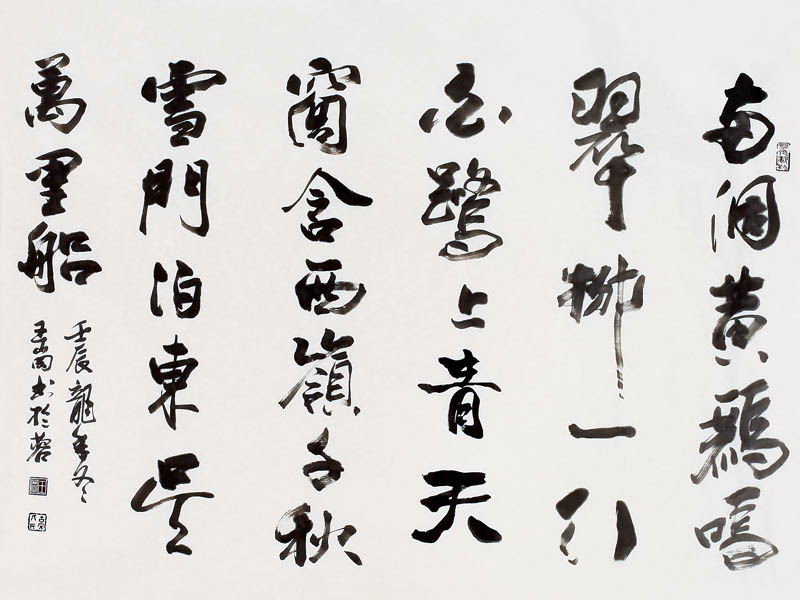 两個黄鸝鳴
翠柳一行
白鷺上青天
窗含西嶺千秋
雪門泊東吴
萬里船
壬辰龍年冬
王書於蓉